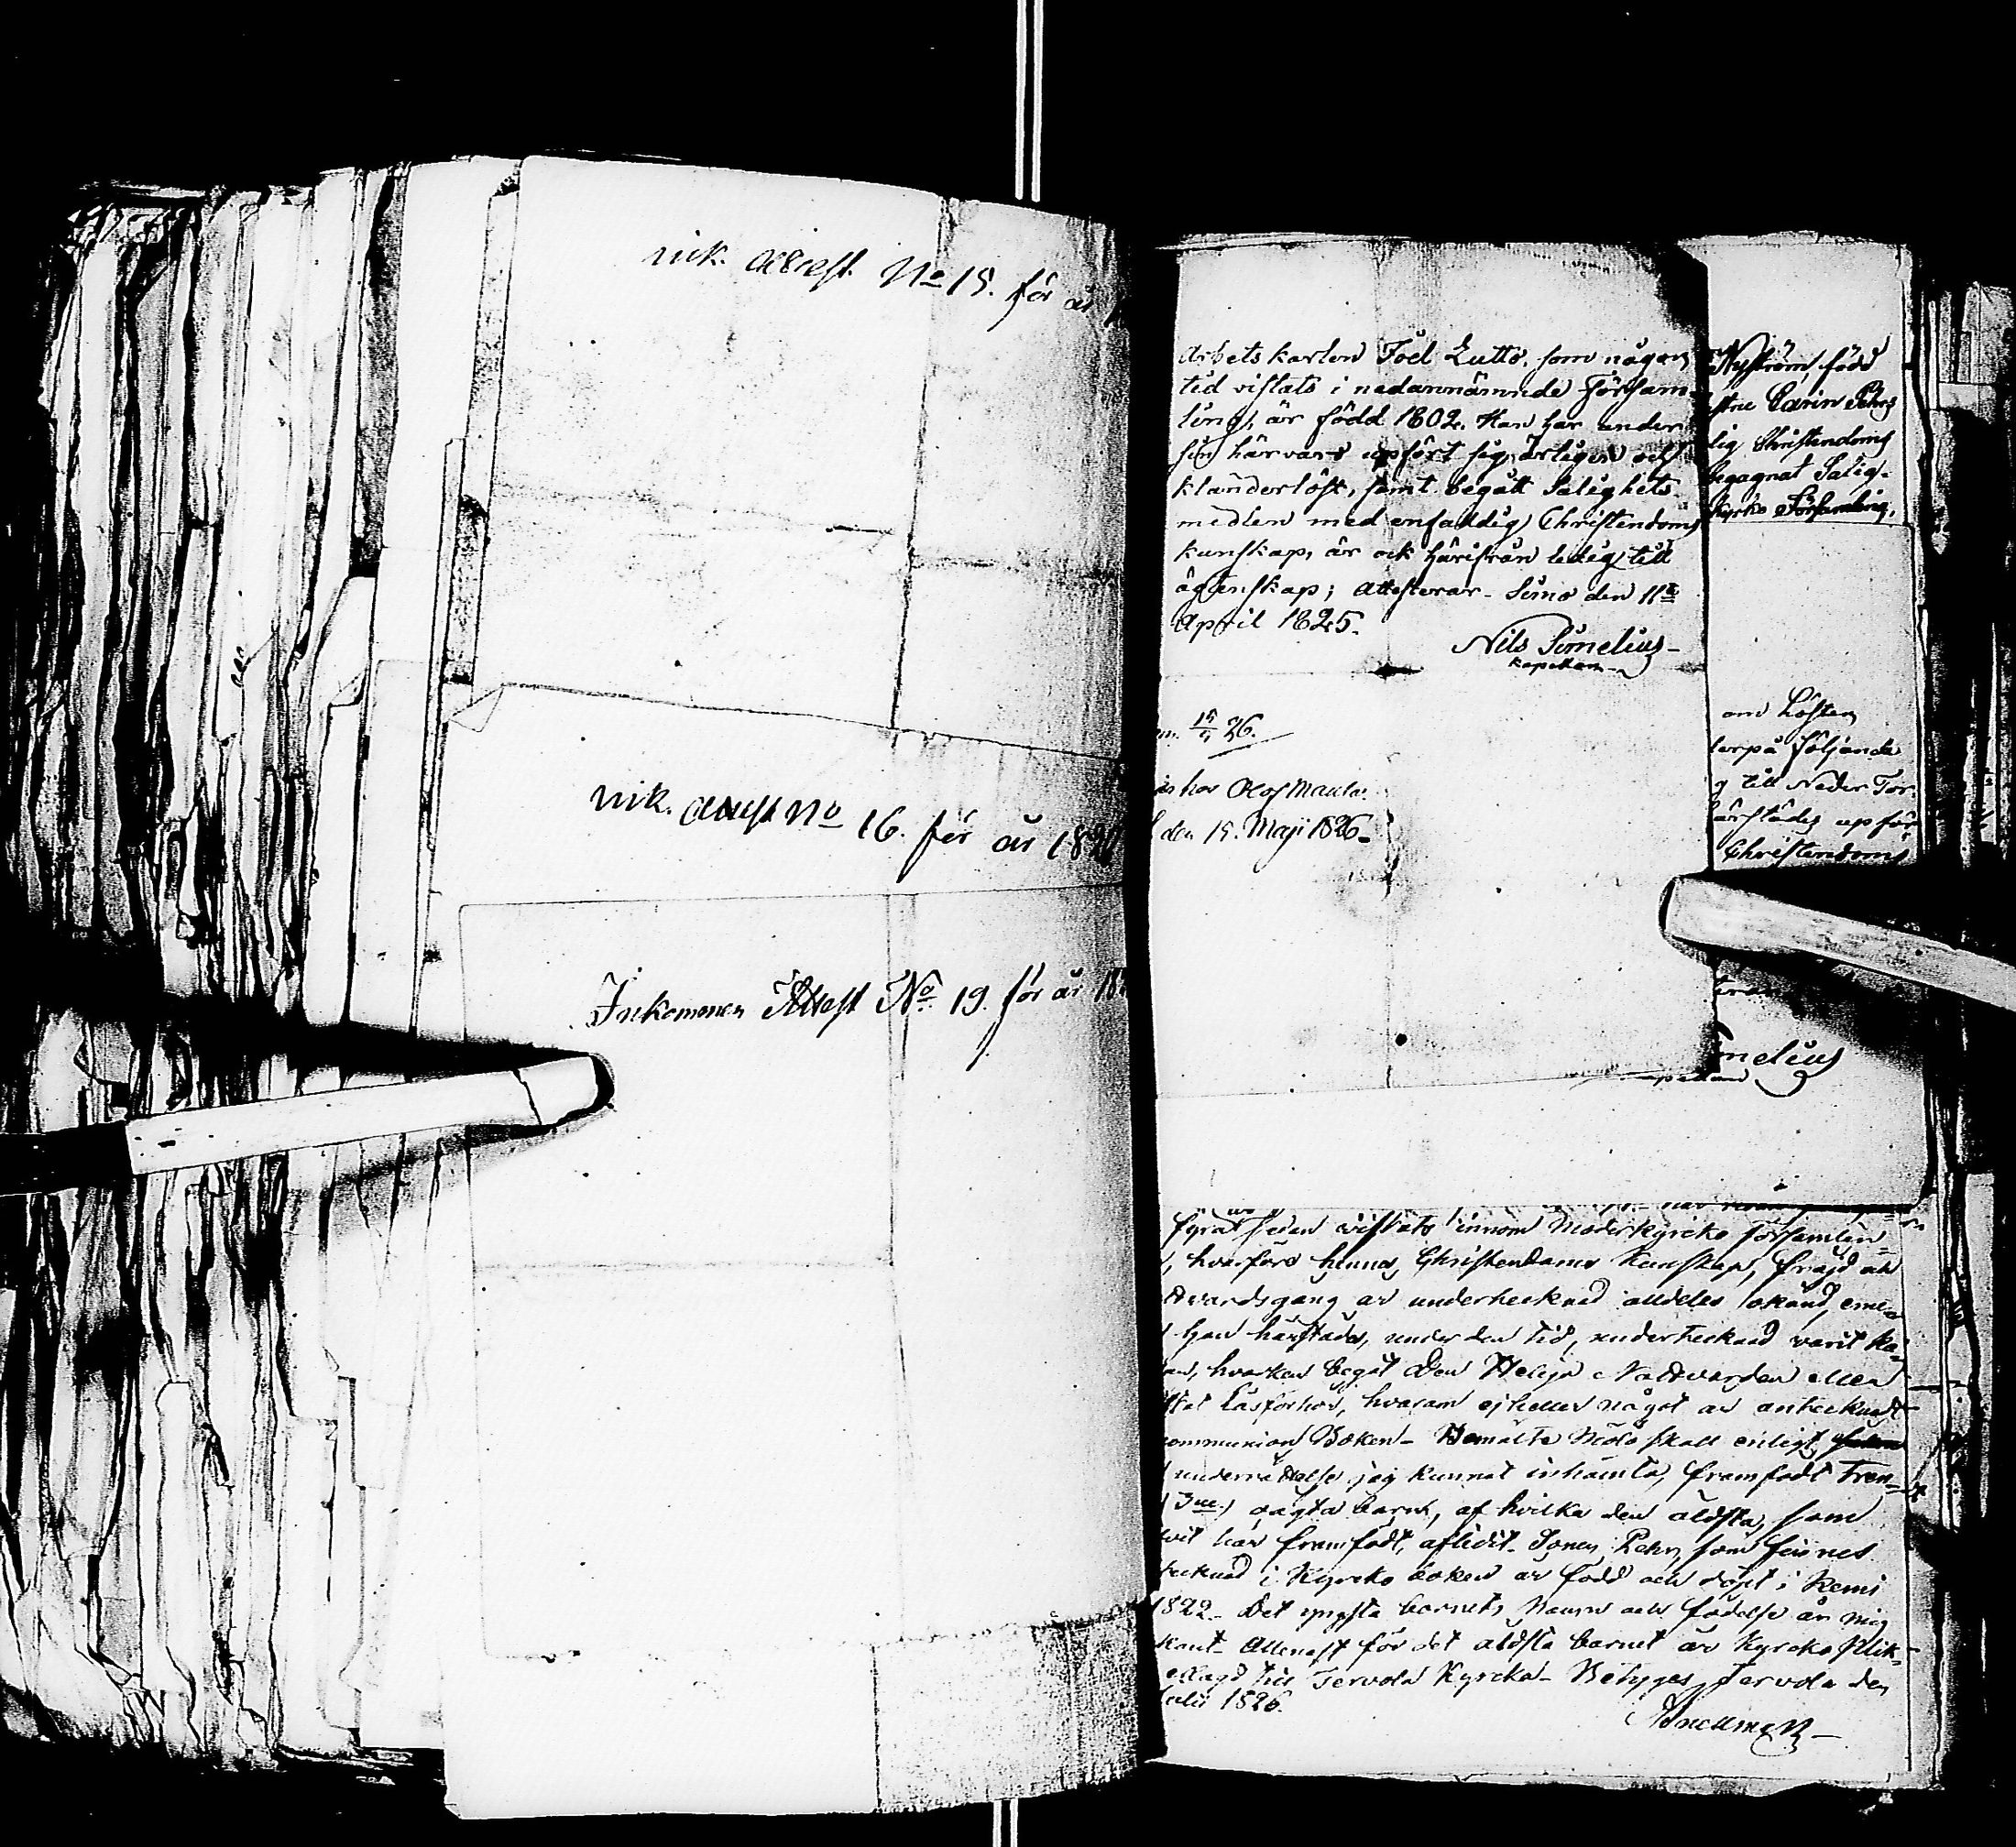 ink. Attest No 15. för år
ink. Attest No 16. för år 182
Inkommen Attest No 19. för år 18
Arbetskarlen Joel Lutto, som någon
tid vistats i nedannämnde Försam-
ling, är född 1802. Han har under
sin härvaro upfört sig ärligen och
klanderlöst, samt begått Salighets-
medlen med enfaldig Christendoms
kunskap, är ock härifrån ledig till
ägtenskap; attesterar. Simo den 11te
April 1825.
Nils Simelius
Kapellan
15/5 26.
hos Olof Maula.
den 15. Maji 1826.
Nyström, född
Carin Pehrs
lig Christendoms
begagnat Salig-
kyrko Församling,
om hösten
derpå följande
g till Neder Tor
därstädes upför
Christendoms
melius
fyra sedan vistats innom Moderkyrcko församlin-
, hvarföre hennes Christendoms Kunskap, frejd och
ttvardsgang är undertecknad alldeles okänd, eme-
hon härstädes, under den tid, undertecknad varit Ka-
an, hvarken begåt den Heliga Nattvarden eller
Läsförhör, hvarom ejheller något är antecknadt
ommunion Boken. Bemälte skall enligt
underrättelse jag kunnat inhämta, framfödt Tren-
(3ne) oägta barn, af hvilka den äldsta, som
har framfödt, aflidit. Sonen Pehr, som finnes
tecknad i Kyrcko boken är född och döpt i Kemi
1822. Det yngsta barnets Namn och födelse är mig
kant. Allenast för det äldsta barnet är Kyrcko Plik-
aflagd här Tervola Kyrcka. Betyges, Tervola den
Julii 1826.
Snellman